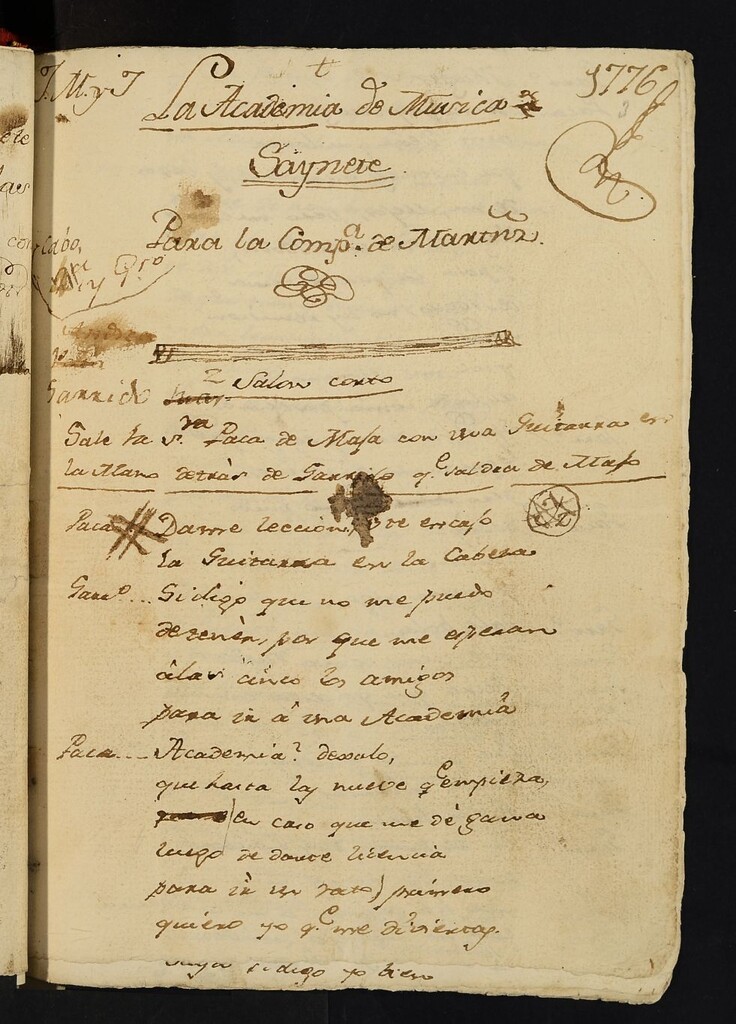 J. M. y J
1776
La Academia de Musica
Saynete
Para la Compª. de Martnz.
Garrido
Salon corto
Sale la Sra. Paca de Maja con una Guitarra en
la Mano detras de Garrido qe. saldra de Majo
Paca Dame leccion, o te encajo
la Guitarra en la Cabeza
Garrº... Si digo que no me puedo
detenèr, por que me esperan
à las cinco los amigos
para ir â una Academia
Paca... Academia? dexalo,
que hasta las nueve qe empieza,
(en caso que me dè gana
luego de darte licencia
para ir un rato) primero
quiero yo qe. me diviertas.
digo yo bien